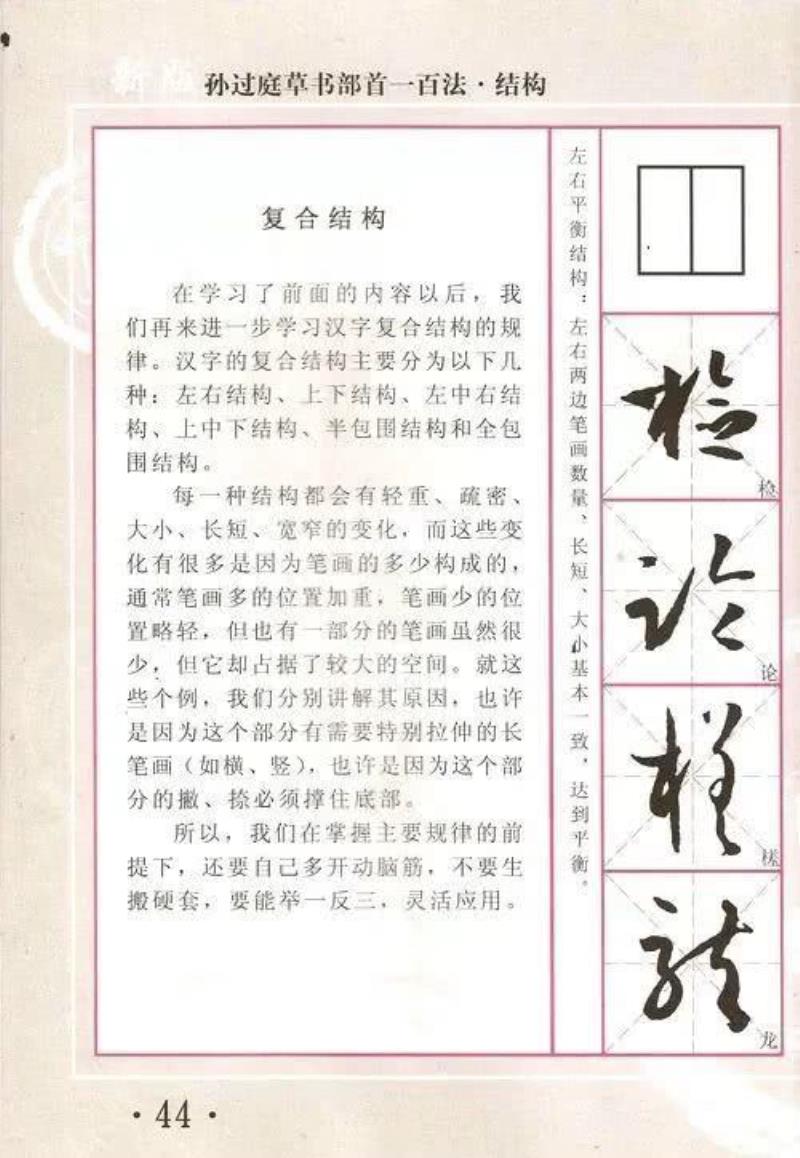 新版 孙过庭草书部首一百法·结构
复合结构
在学习了前面的内容以后，我
们再来进一步学习汉字复合结构的规
律。汉字的复合结构主要分为以下几
种：左右结构、上下结构、左中右结
构、上中下结构、半包围结构和全包
围结构。
每一种结构都会有轻重、疏密、
大小、长短、宽窄的变化，而这些变
化有很多是因为笔画的多少构成的，
通常笔画多的位置加重，笔画少的位
置略轻，但也有一部分的笔画虽然很
少，但它却占据了较大的空间。就这
些个例，我们分别讲解其原因，也许
是因为这个部分有需要特别拉伸的长
笔画（如横、竖），也许是因为这个部
分的撇、捺必须撑住底部。
所以，我们在掌握主要规律的前
提下，还要自己多开动脑筋，不要生
搬硬套，要能举一反三，灵活应用。
左右平衡结构：左右两边笔画数量、长短、大小基本一致，达到平衡。
检
论
龙
·44·